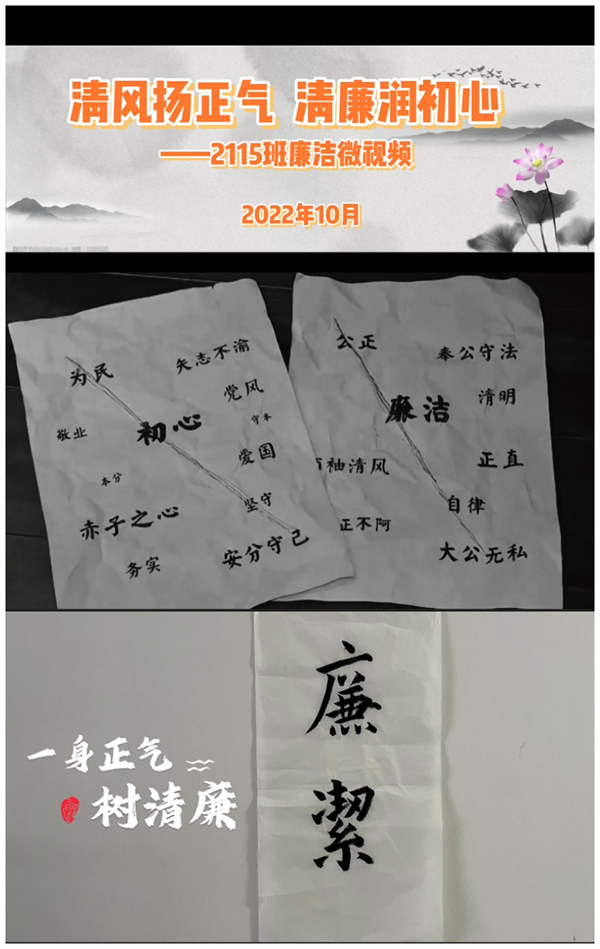 清风扬正气 清廉润初心
——2115班廉洁微视频
2022年10月
为民
矢志不渝
党风
敬业
初心
守本
爱国
本分
坚守
赤子之心
务实
安分守己
公正
奉公守法
清明
廉洁
袖清风
正直
自律
正不阿
大公无私
一身正气
树清廉
廉
潔